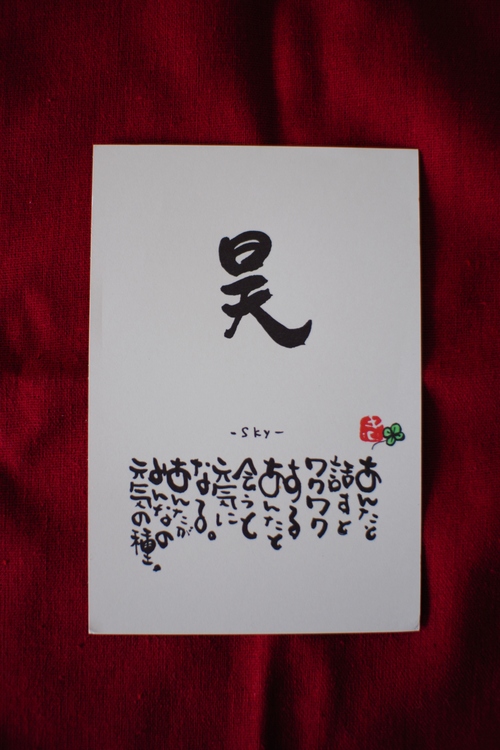 昊
-Sky-
あんたと
話すと
ワクワク
する
あんたと
会うと
元気に
なる。
あんたが
みんなの
元気の種。